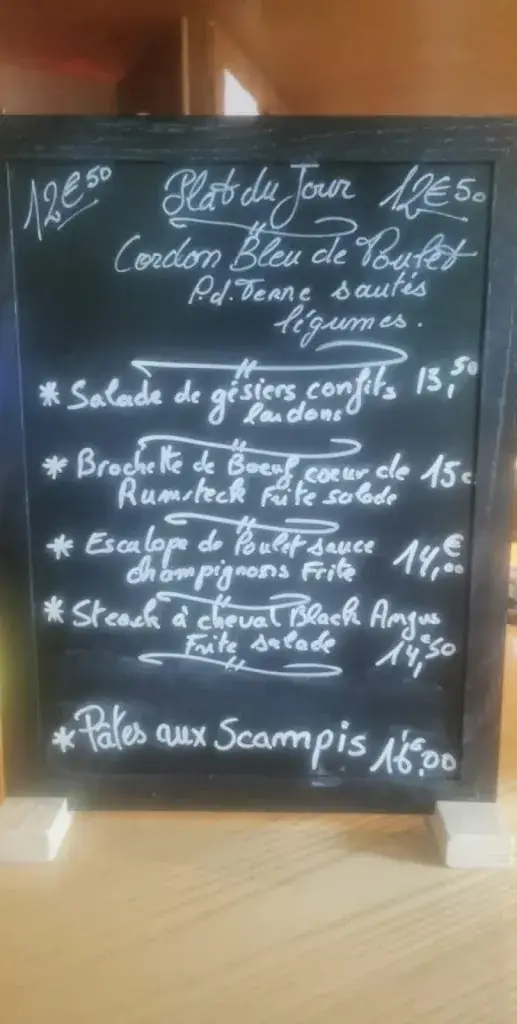 12€50 Plat du Jour 12€50
Cordon Bleu de Poulet
P.d.Terre sautés
légumes.
* Salade de gésiers confits 13,50
lardons
* Brochette de Boeuf coeur de 15€
Rumsteck Frite salade
* Escalope de Poulet sauce 14,€00
champignons Frite
* Steack à cheval Black Angus
Frite salade 14,€50
* Pâtes aux Scampis 16€.00